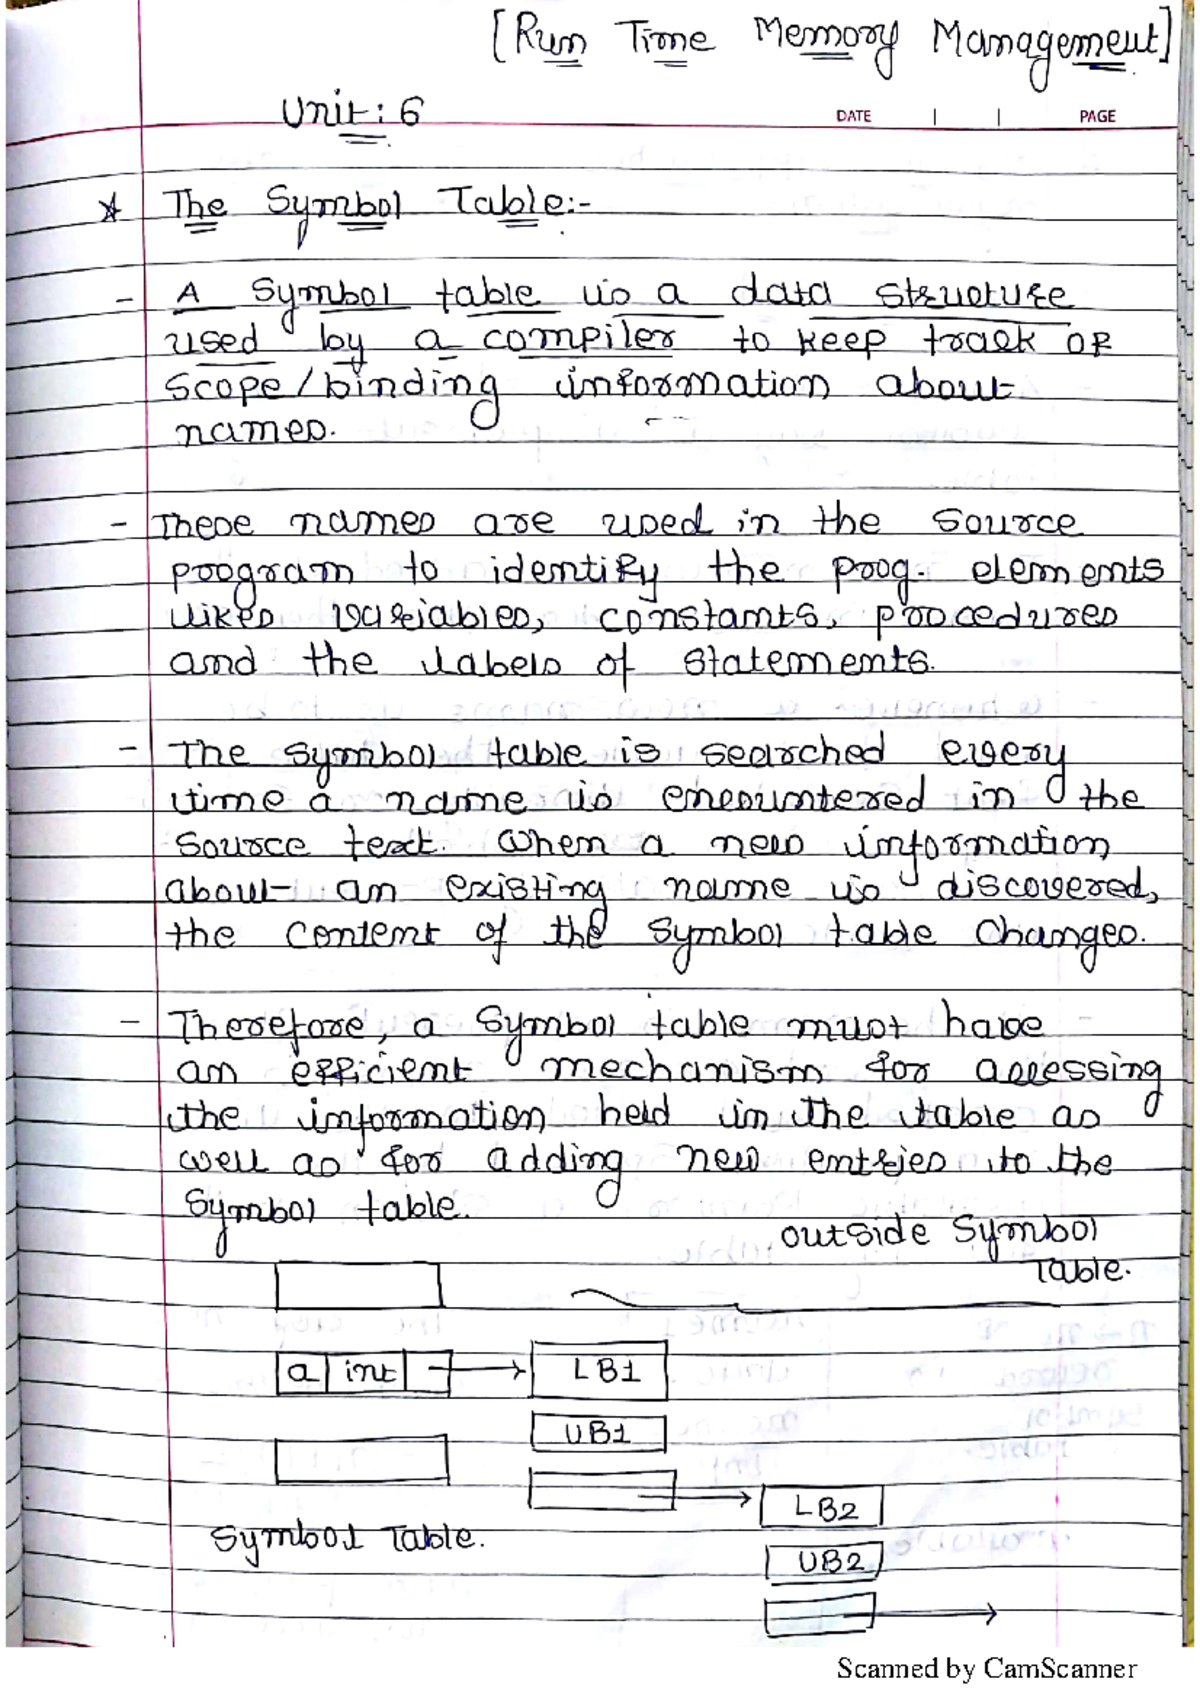 [Run Time Memory Management]
Unit: 6
DATE | | PAGE
* The Symbol Table:-
- A Symbol table is a data structure
used by a compiler to keep track of
scope/binding information about
names.
- These names are used in the source
program to identify the prog. elements
likes variables, constants, procedures
and the labels of statements.
- The symbol table is searched every
time a name is encountered in the
source text. When a new information
about an existing name is discovered,
the content of the symbol table changes.
- Therefore, a symbol table must have
an efficient mechanism for accessing
the information held in the table as
well as for adding new entries to the
symbol table.
outside Symbol
Table.
a int LB1
UB1
LB2
Symbol Table.
UB2
Scanned by CamScanner